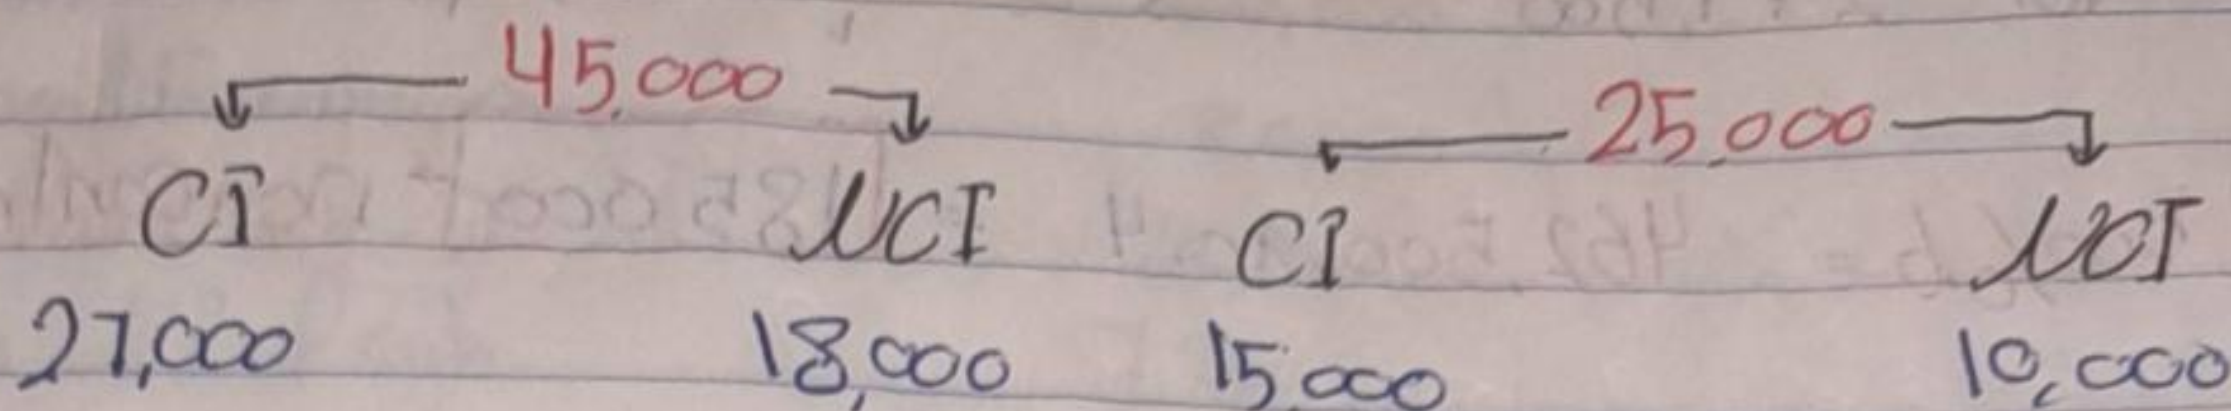 45,000 25,000
CI NCI CI NCI
27,000 18,000 15,000 10,000